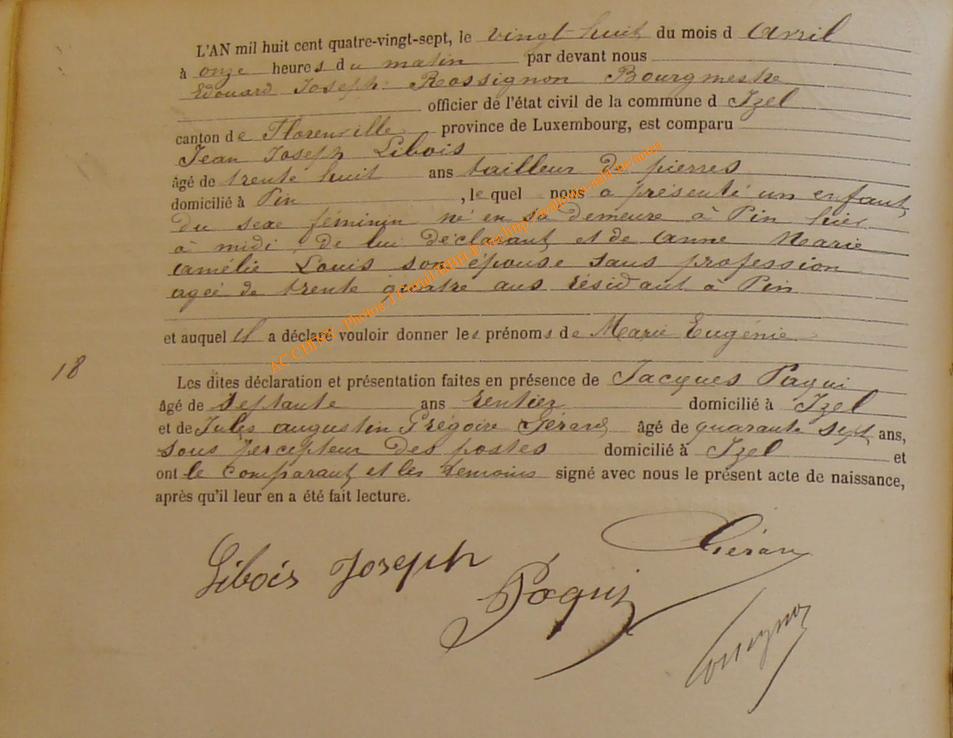 L'AN mil huit cent quatre-vingt-sept, le vingt-huit du mois d Avril
à onze heures du matin par devant nous
Edouard Joseph Rossignon Bourgmestre
officier de l'état civil de la commune d Izel
canton de Florenville province de Luxembourg, est comparu
Jean Joseph Libois
âgé de trente huit ans tailleur de pierres
domicilié à Pin , lequel nous a présenté un enfant
du sexe féminin né en sa demeure à Pin hier
à midi, de lui déclarant et de Anne Marie
Amélie Louis son épouse sans profession
agée de trente quatre ans résidant à Pin
et auquel il a déclaré vouloir donner les prénoms de Marie Eugénie
18
Les dites déclaration et présentation faites en présence de Jacques Paqui
âgé de septante ans rentier domicilié à Izel
et de Jules Augustin Grégoire Gérard âgé de quarante sept ans,
sous percepteur des postes domicilié à Izel et
ont le comparant et les témoins signé avec nous le présent acte de naissance,
après qu'il leur en a été fait lecture.
Gérard
Libois Joseph
Paqui
Rossignon